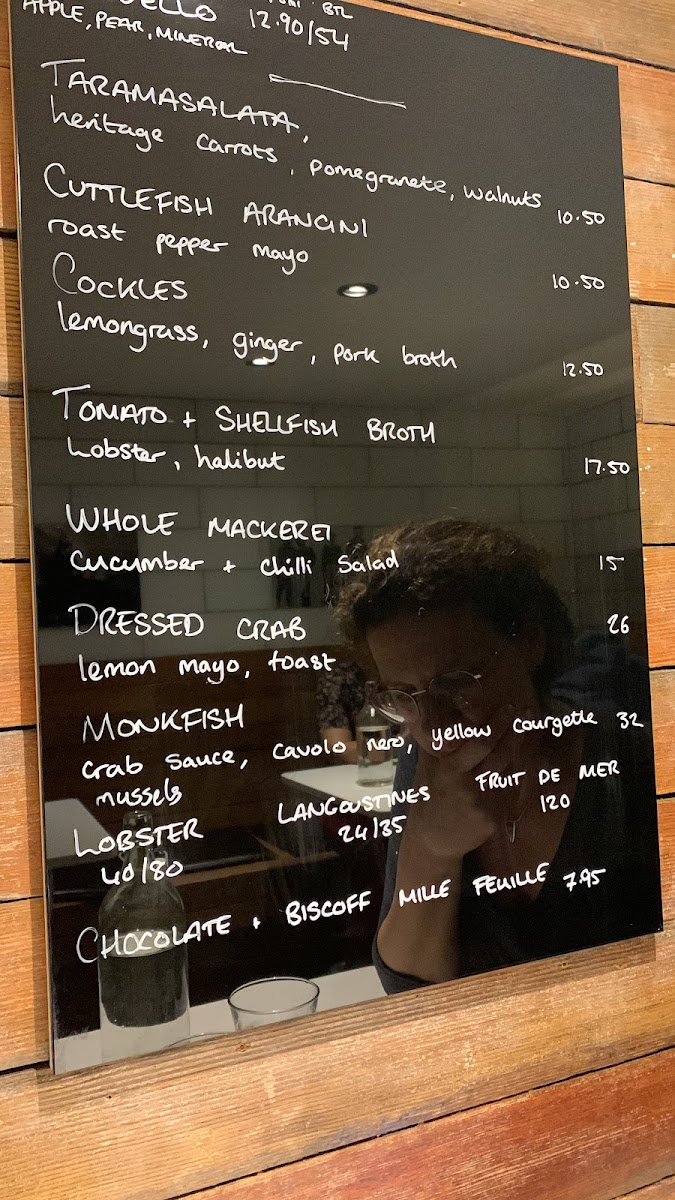 BTL
APPLE, PEAR, MINERAL 12.90/54
TARAMASALATA,
heritage carrots, pomegranete, walnuts 10.50
CUTTLEFISH ARANCINI
roast pepper mayo 10.50
COCKLES
lemongrass, ginger, pork broth 12.50
TOMATO + SHELLFISH BROTH
Lobster, halibut 17.50
WHOLE MACKEREl
Cucumber + chilli Salad 15
DRESSED CRAB 26
lemon mayo, toast
MONKFISH
Crab Sauce, Cavolo nero, yellow courgette 32
mussels
LOBSTER LANGOUSTINES FRUIT DE MER
40/80 24/35 120
CHOCOLATE + BISCOFF MILLE FEUILLE 7.95